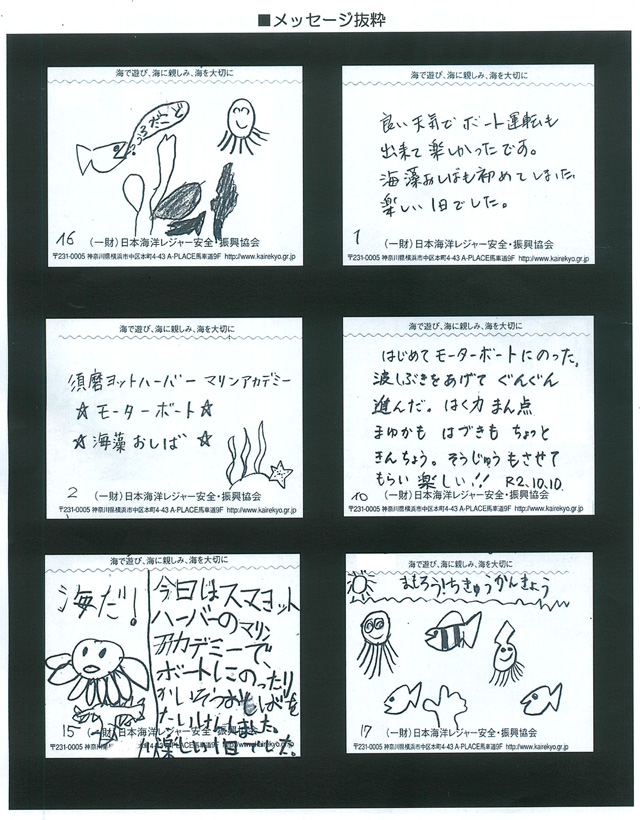 ■メッセージ抜粋
海で遊び、海に親しみ、海を大切に
16
(一財)日本海洋レジャー安全・振興協会
〒231-0005 神奈川県横浜市中区本町4-43 A-PLACE馬車道9F http://www.kairekyo.gr.jp
海で遊び、海に親しみ、海を大切に
良い天気でボート運転も
出来て楽しかったです。
海藻おしばも初めてしました
楽しい1日でした。
1
(一財)日本海洋レジャー安全・振興協会
〒231-0005 神奈川県横浜市中区本町4-43 A-PLACE馬車道9F http://www.kairekyo.gr.jp
海で遊び、海に親しみ、海を大切に
須磨ヨットハーバー マリンアカデミー
☆モーターボート☆
☆海藻おしば☆
2
(一財)日本海洋レジャー安全・振興協会
〒231-0005 神奈川県横浜市中区本町4-43 A-PLACE馬車道9F http://www.kairekyo.gr.jp
海で遊び、海に親しみ、海を大切に
はじめてモーターボートにのった。
波しぶきをあげて ぐんぐん
進んだ。はく力 まん点
まゆかも はづきも ちょっと
きんちょう。そうじゅうもさせて
もらい 楽しい!! R2.10.10.
10
(一財)日本海洋レジャー安全・振興協会
〒231-0005 神奈川県横浜市中区本町4-43 A-PLACE馬車道9F http://www.kairekyo.gr.jp
海で遊び、海に親しみ、海を大切に
海だ!
今日はスマヨット
ハーバーのマリン
アカデミーで、
ボートにのったり
かいそうおしばを
たいけんしました。
楽しい1日でした。
15
(一財)日本海洋レジャー安全・振興協会
〒231-0005 神奈川県横浜市中区本町4-43 A-PLACE馬車道9F http://www.kairekyo.gr.jp
海で遊び、海に親しみ、海を大切に
まもろう!ちきゅうかんきょう
17
(一財)日本海洋レジャー安全・振興協会
〒231-0005 神奈川県横浜市中区本町4-43 A-PLACE馬車道9F http://www.kairekyo.gr.jp